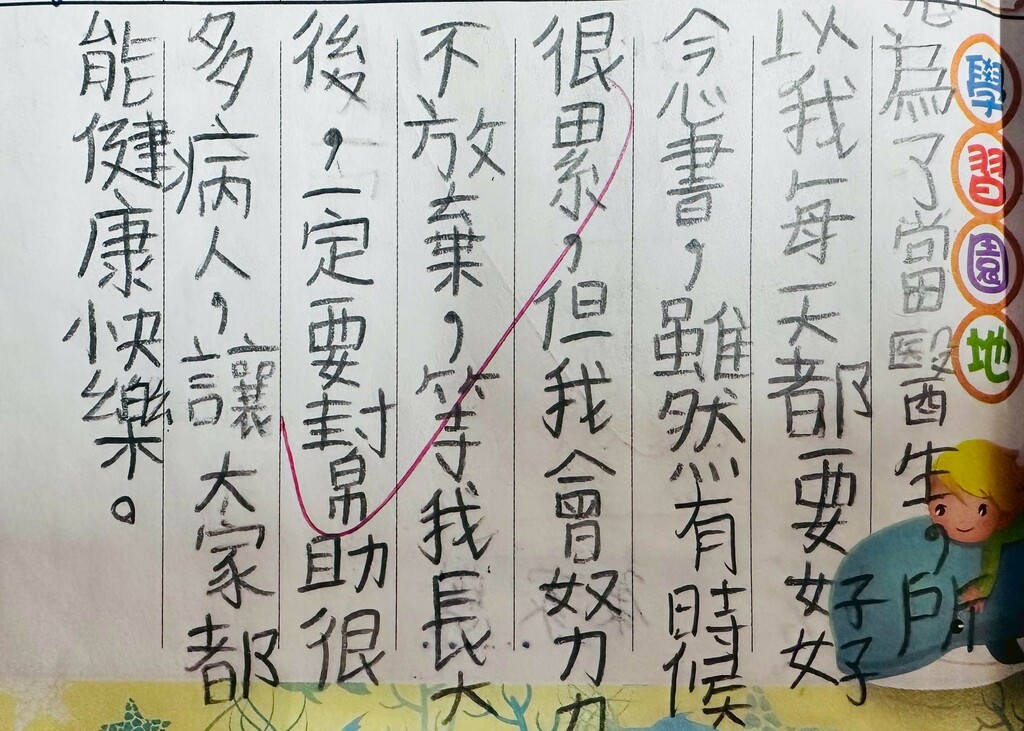 學習園地
為了當醫生，所
以我每天都要好好
念書，雖然有時候
很累，但我會努力力
不放棄，等我長大
後，一定要幫助很
多病人，讓大家都
能健康快樂。